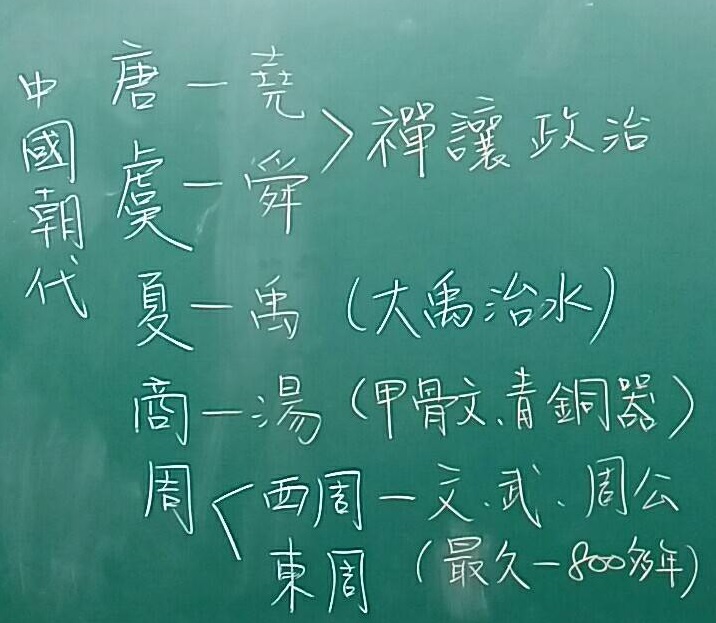 中國朝代
唐－堯
虞－舜
＞禪讓政治
夏－禹（大禹治水）
商－湯（甲骨文、青銅器）
周＜西周－文、武、周公
東周（最久－800多年）